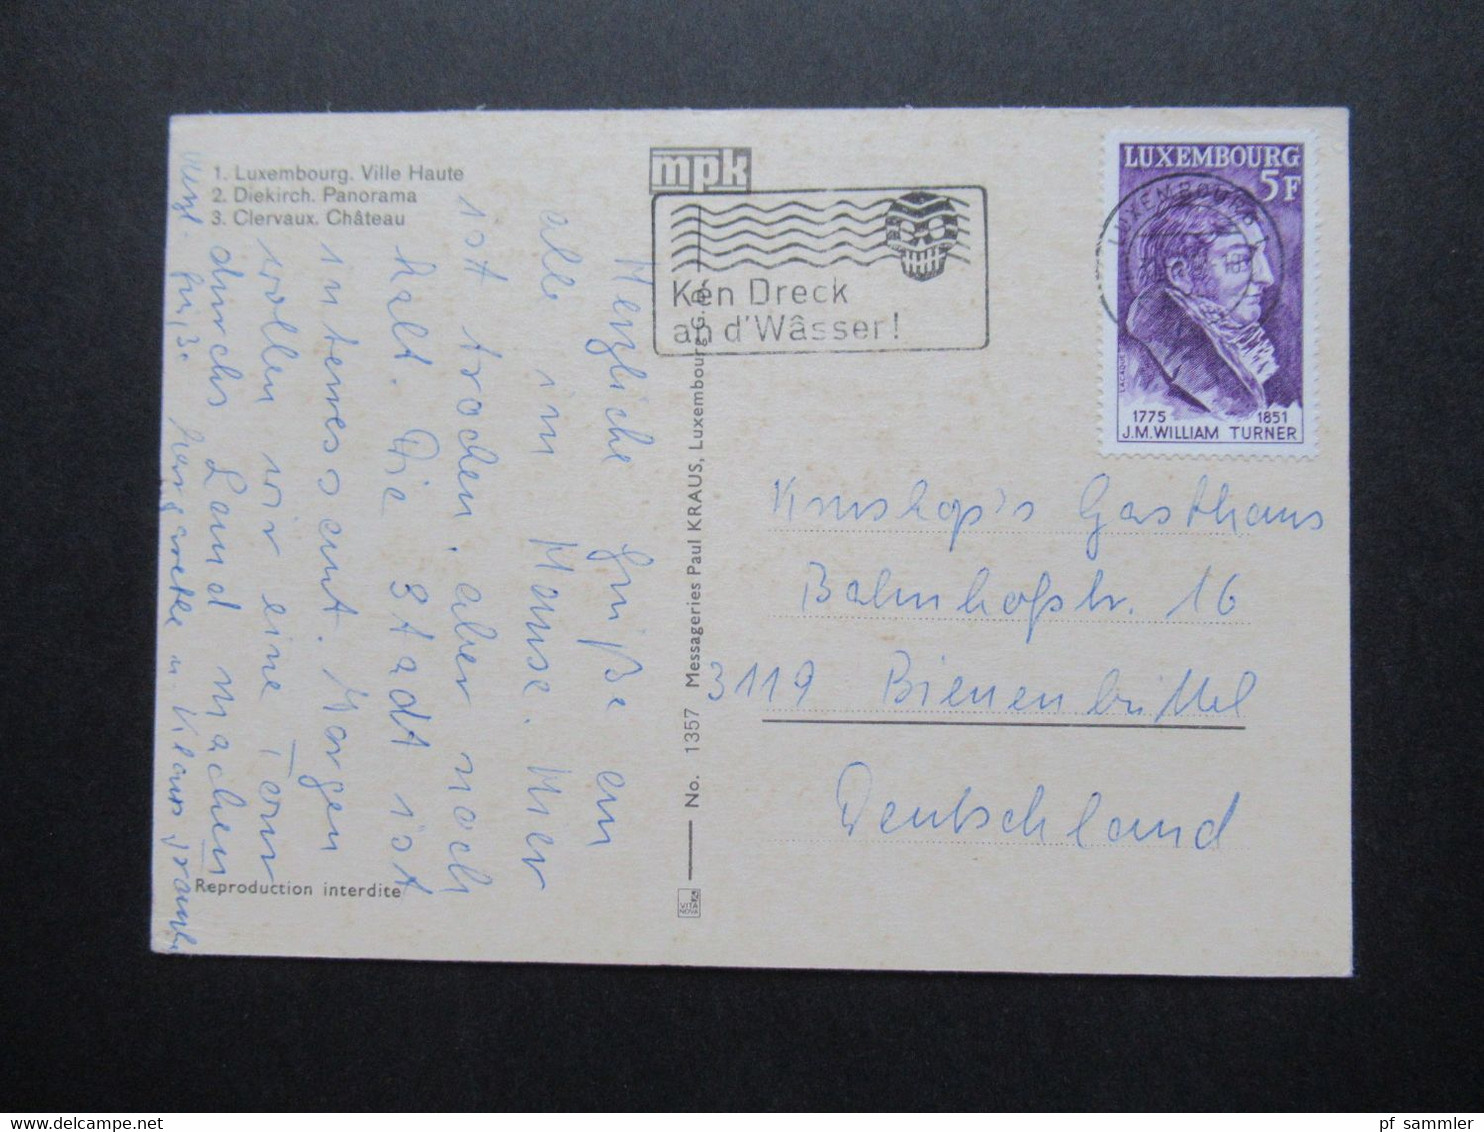 1. Luxembourg. Ville Haute
2. Diekirch. Panorama
3. Clervaux. Château
mpk
Ken Dreck
an d'Wâsser!
LUXEMBOURG
5F
LUXEMBOURG
LACAQUE
1775 1851
J.M.WILLIAM TURNER
Herzliche Grüße an
alle im Hause. Hier
ist trocken, aber noch
kalt. Die Stadt ist
interessant. Morgen
wollen wir eine Tour
durchs Land machen
Grüße Margarethe u. Klaus
Gasthaus
Bahnhofstr. 16
3119 Bienenbüttel
Deutschland
No. 1357 Messageries Paul KRAUS, Luxembourg, G.D.
VITA
NOVA
Reproduction interdite
pf_sammler